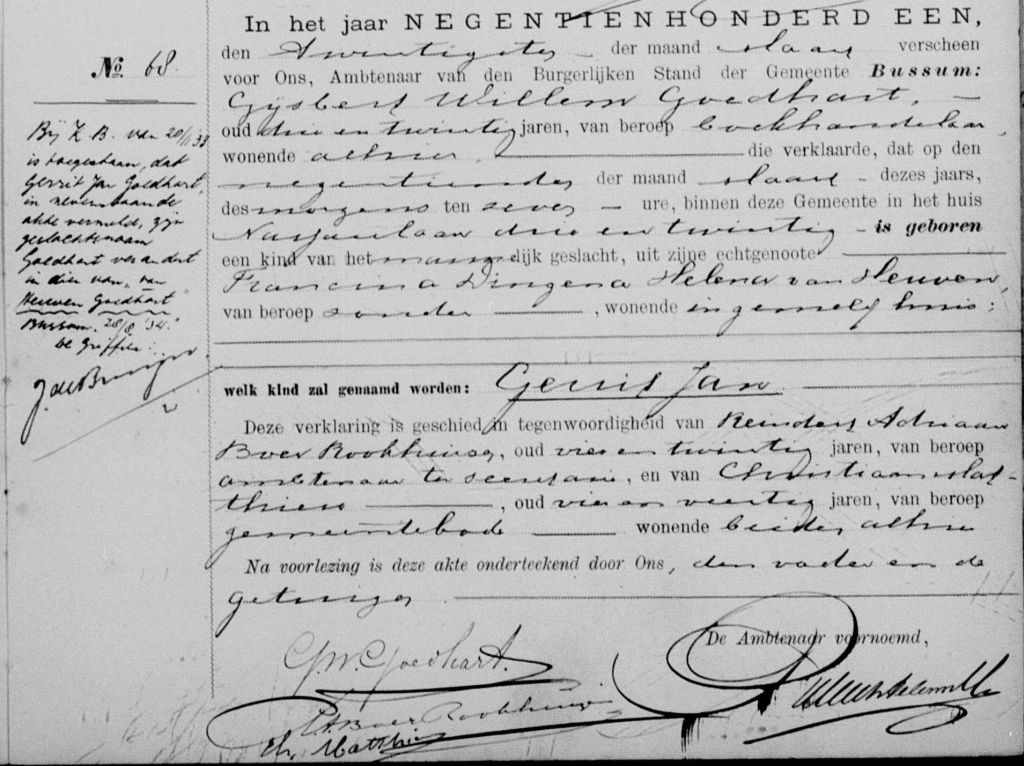 In het jaar NEGENTIENHONDERD EEN,
den twintigsten der maand Maart verscheen
voor Ons, Ambtenaar van den Burgerlijken Stand der Gemeente Bussum:
Gijsbert Willem Goedhart,
oud drie en twintig jaren, van beroep boekhandelaar,
wonende alhier die verklaarde, dat op den
negentienden der maand Maart dezes jaars,
des morgens ten zeven ure, binnen deze Gemeente in het huis
Nassaulaan drie en twintig is geboren
een kind van het mannelijk geslacht, uit zijne echtgenoote
Francina Dingena Helena van Heuven,
van beroep zonder, wonende in gemeld huis;
welk kind zal genaamd worden: Gerrit Jan
Deze verklaring is geschied in tegenwoordigheid van Reindert Adriaan
Boer Rookhuizen, oud vier en twintig jaren, van beroep
ambtenaar ter secretarie, en van Christiaan Mat-
thies, oud vier en veertig jaren, van beroep
gemeentebode wonende beiden alhier
Na voorlezing is deze akte onderteekend door Ons, den vader en de
getuigen
De Ambtenaar voornoemd,
G.W. Goedhart.
R.A. Boer Rookhuizen
Ch. Matthies
No 68.
Bij K.B. van 20/11 33
is toegestaan, dat
Gerrit Jan Goedhart,
in nevenstaande
akte vermeld, zijn
geslachtsnaam
Goedhart verandert
in dien van "van
Heuven Goedhart"
Bussum. 28/8 '34.
De Griffier: